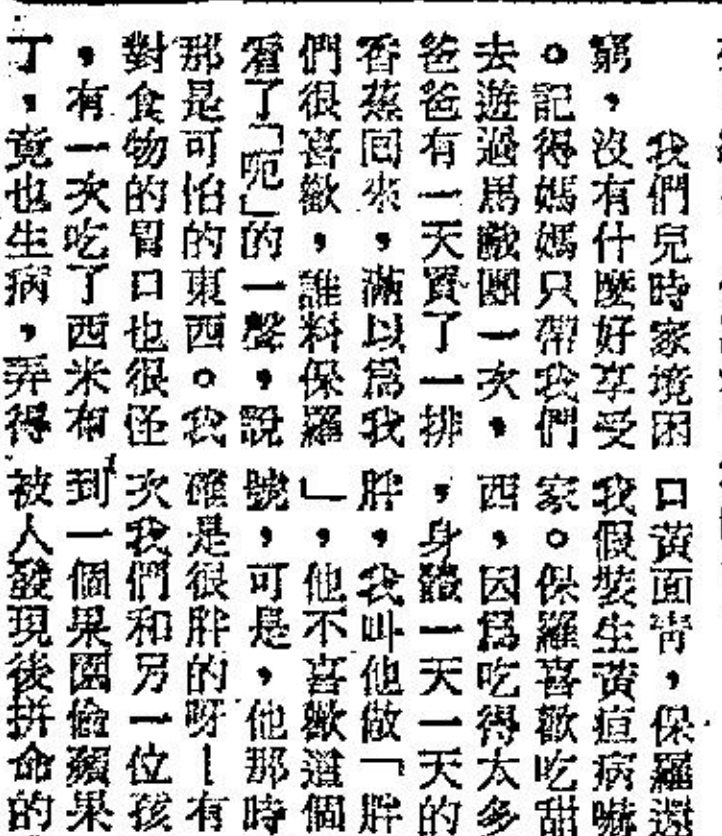 我們兒時家境困
窮，沒有什麼好享受
。記得媽媽只帶我們
去遊過馬戲團一次，
爸爸有一天買了一排
香蕉回來，滿以爲我
們很喜歡，誰料保羅
看了「呃」的一聲，說
那是可怕的東西。我
對食物的胃口也很怪
，有一次吃了西米布
丁，竟也生病，弄得
口黃面靑，保羅還
我假裝生黃疸病嚇
家。保羅喜歡吃甜
西，因爲吃得太多
，身體一天一天的
胖，我叫他做「胖
」，他不喜歡這個
號，可是，他那時
確是很胖的呀！有
次我們和另一位孩
到一個果園偷蘋果
被人發現後拼命的